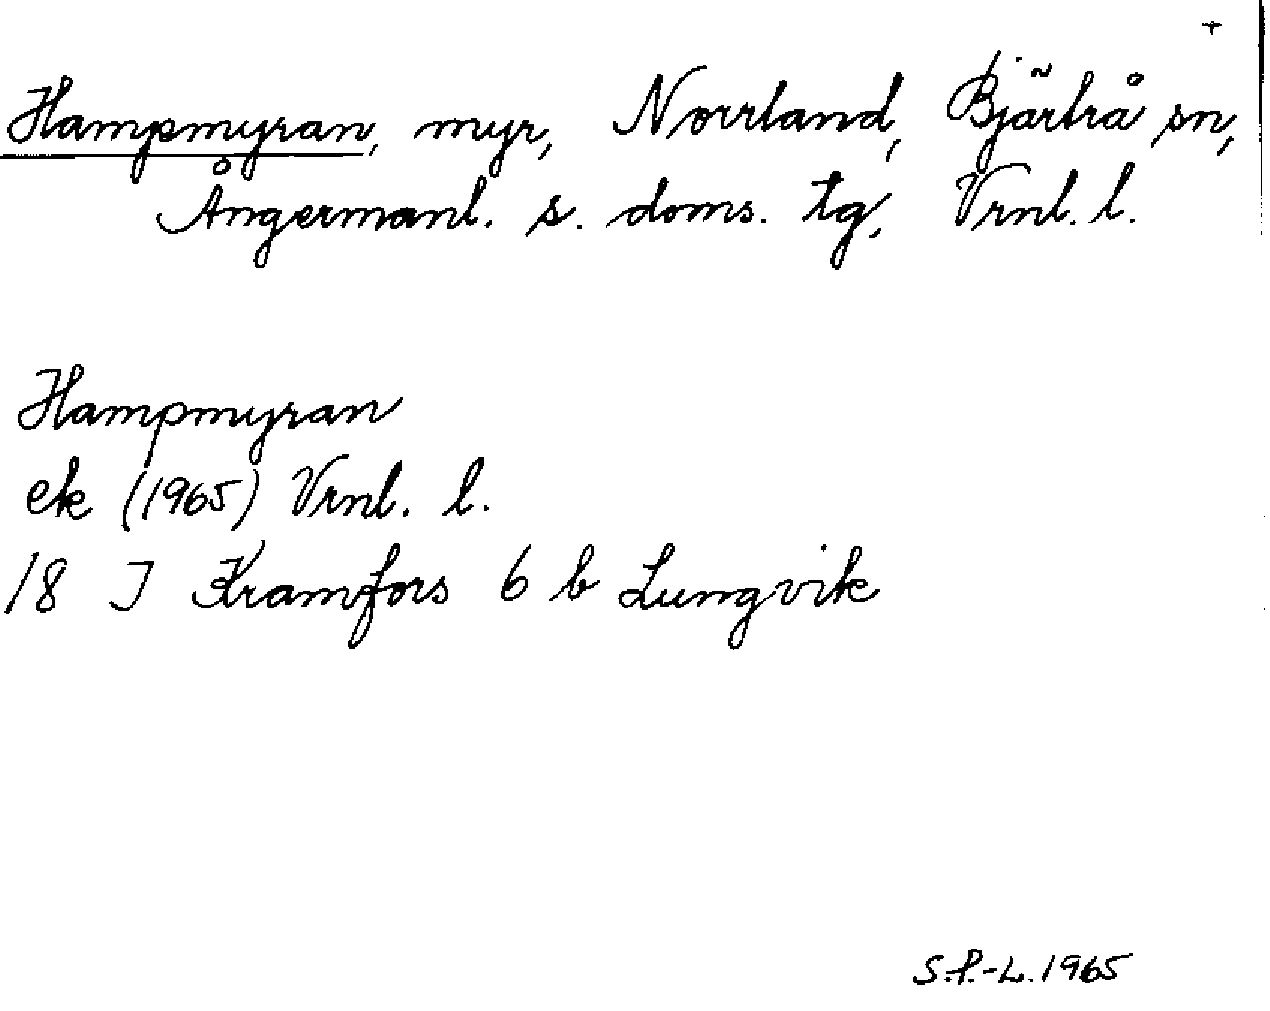 +
Hampmyran, myr, Norrland, Bjärtrå sn,
Ångermanl. s. doms. tg, Vrnl. l.
Hampmyran
ek (1965) Vrnl. l.
18 J Kramfors 6 b Lungvik
S.P.-L. 1965